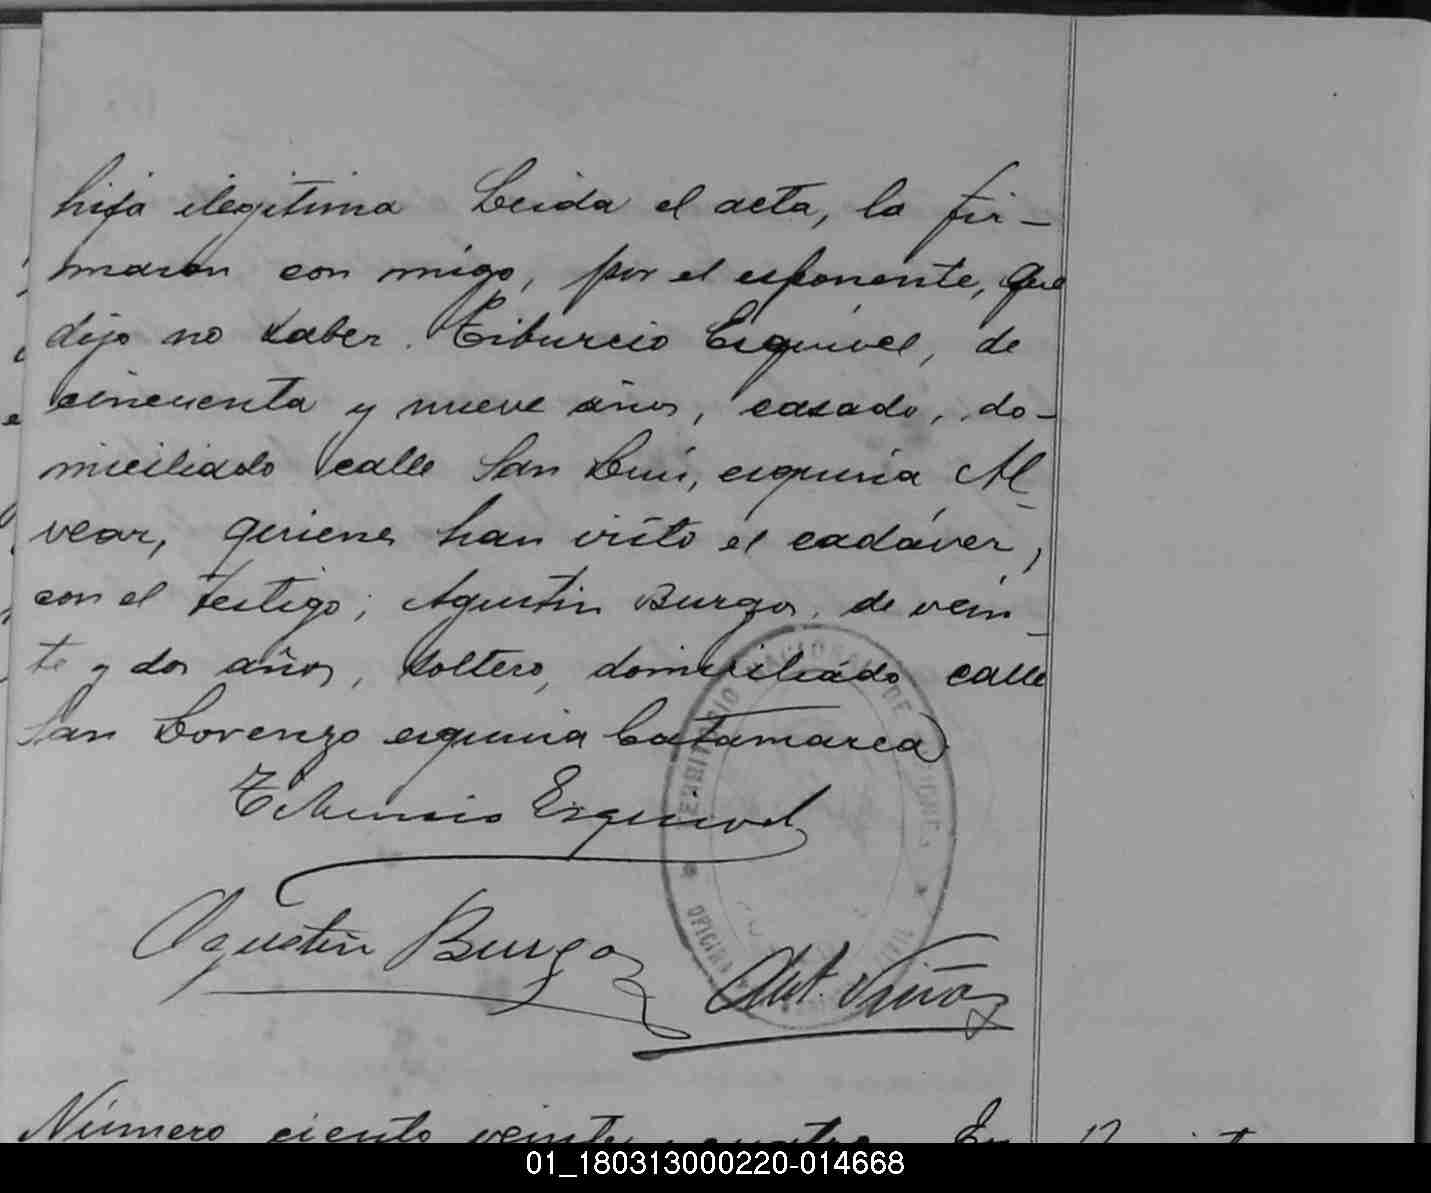 hija ilegitima Leida el acta, la fir-
maron con migo, por el esponente, que
dijo no saber. Tiburcio Esquivel, de
cincuenta y nueve años, casado, do-
miciliado calle San Luis, esquina Al-
vear, quienes han visto el cadáver,
con el testigo; Agustin Burgos, de vein-
te y dos años, soltero, domiciliado calle
San Lorenzo esquina Catamarca
Tiburcio Esquivel
Agustin Burgos
Ant. Viñas
TERRITORIO NACIONAL DE MISIONES
OFICINA
Número ciento veinte y cuatro En
01_180313000220-014668